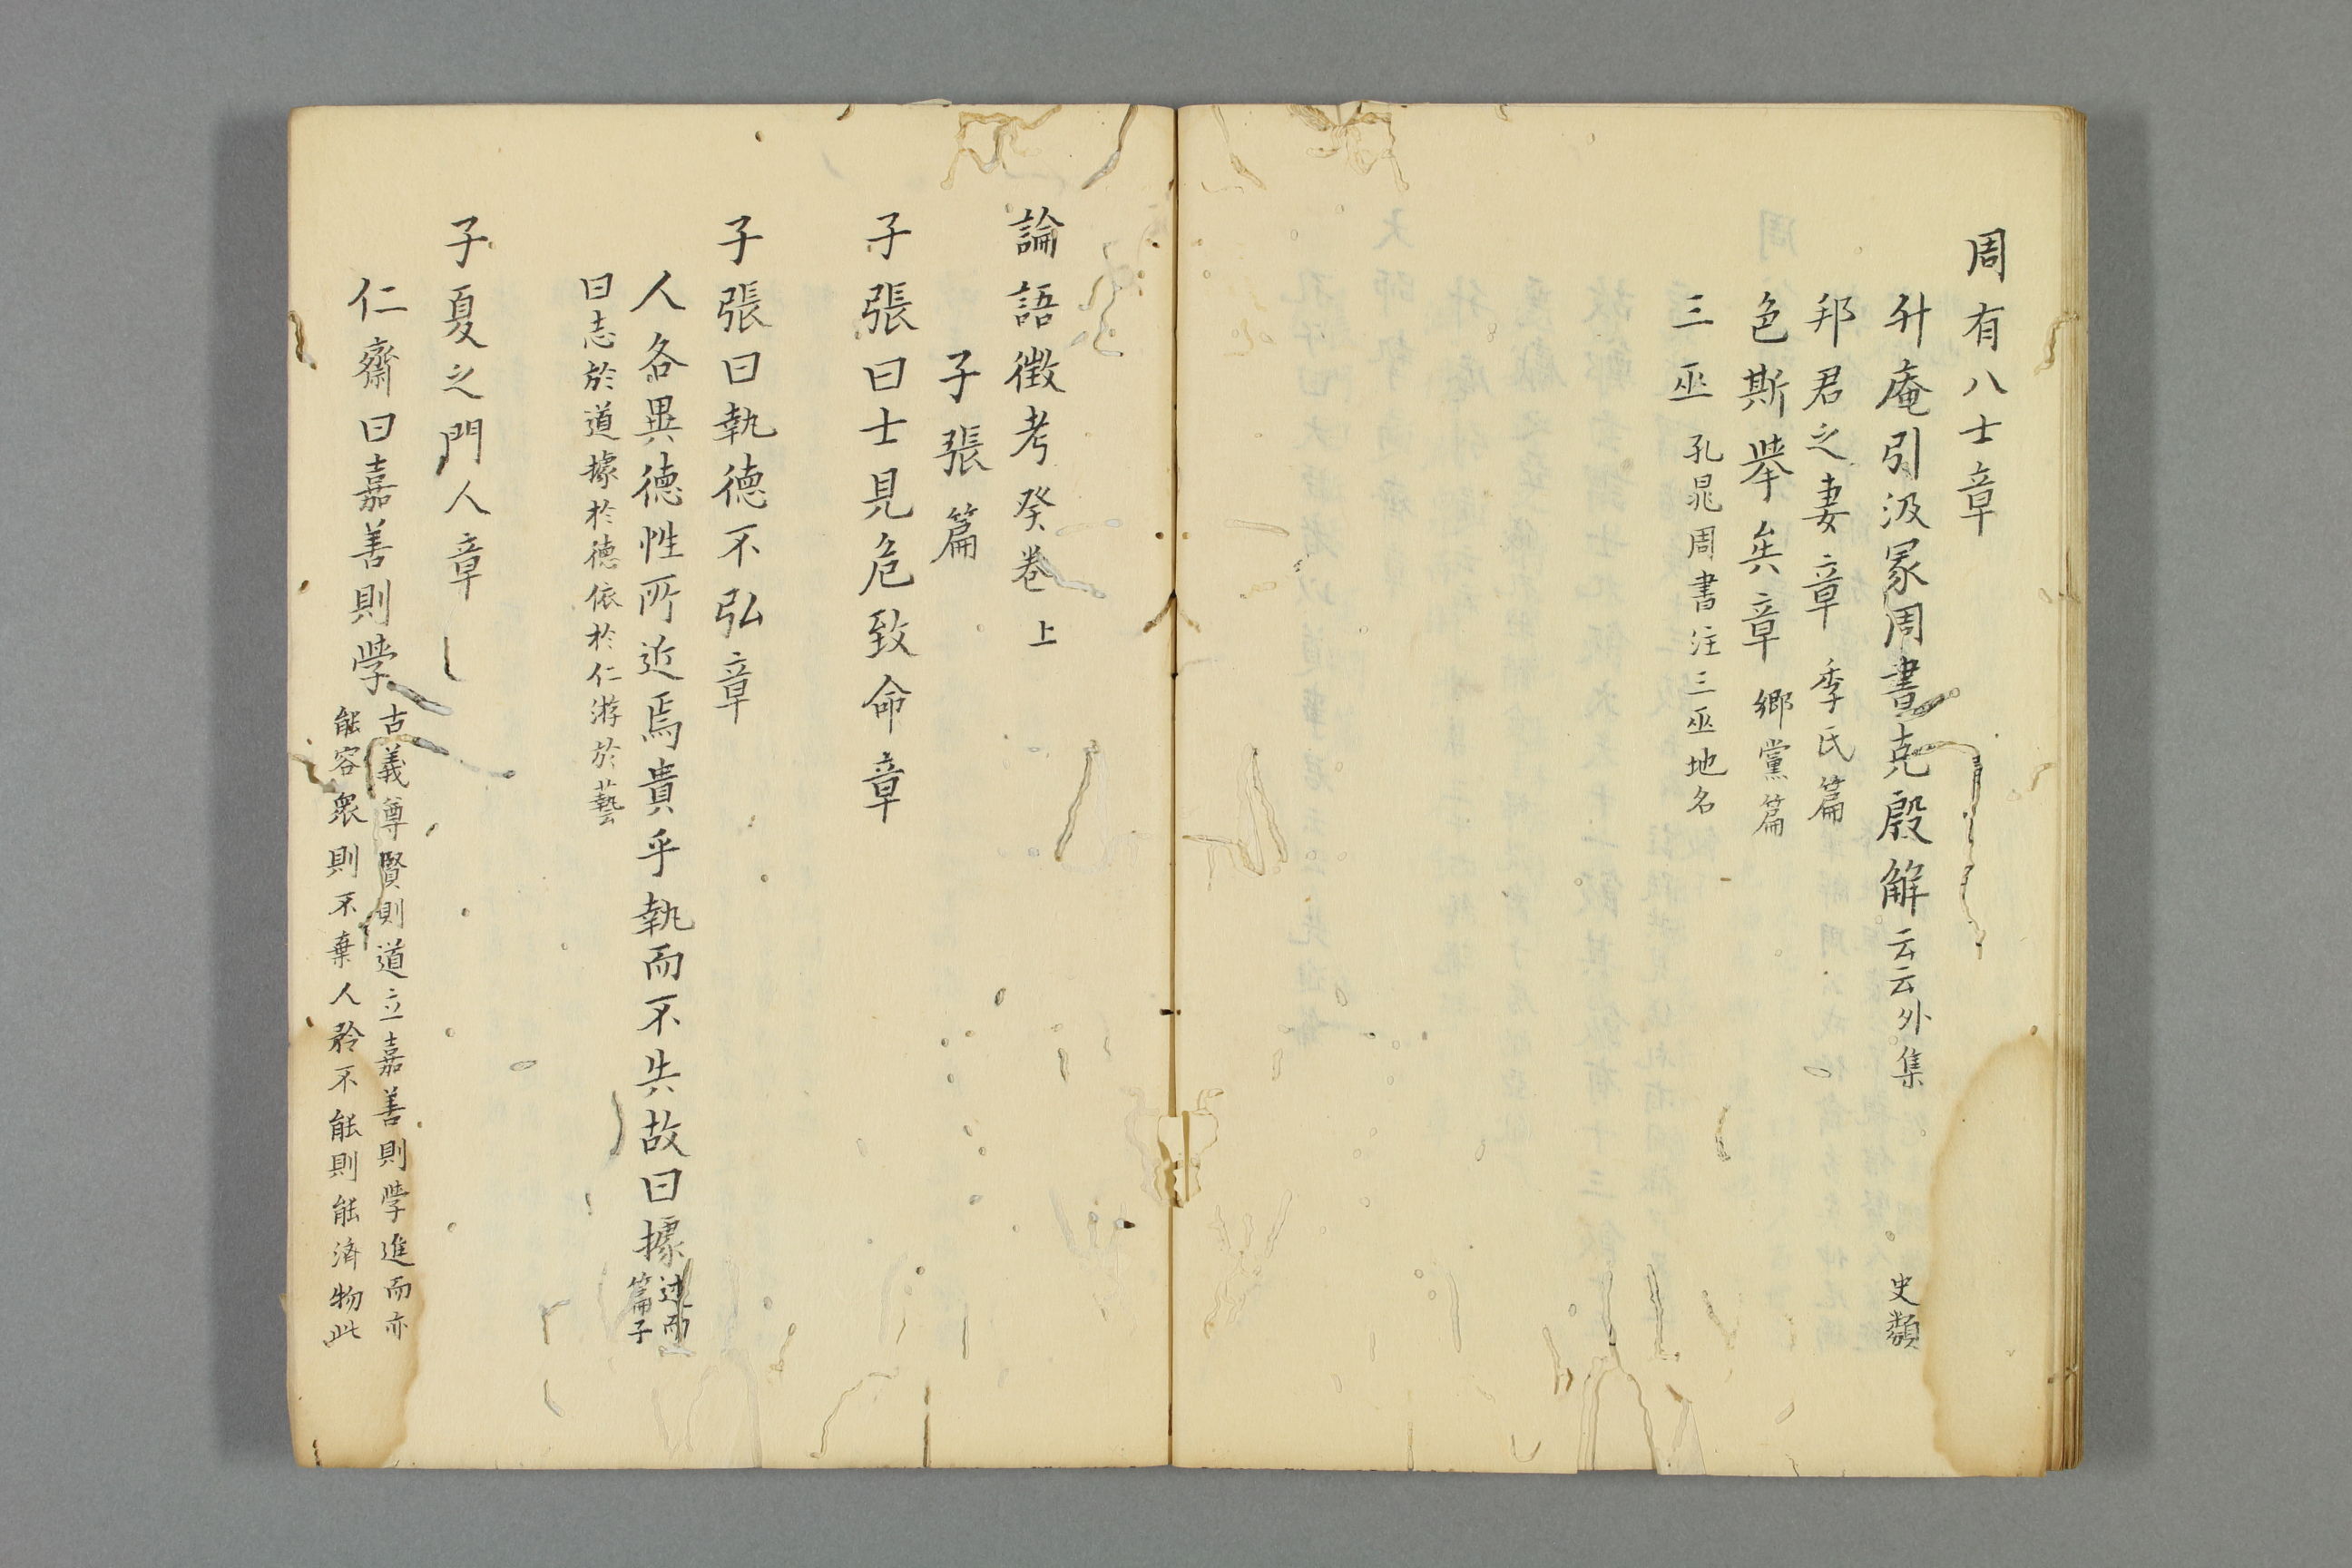 周有八士章
升庵引汲冢周書克殷解云云外集 史類
邦君之妻章 季氏篇
色斯举矣章 郷黨篇
三巫 孔晁周書注三巫地名
論語徴考癸巻上
子張篇
子張曰士見危致命章
子張曰執徳不弘章
人各異徳性所近焉貴乎執而不失故曰據述而篇子
曰志於道據於徳依於仁游於藝
子夏之門人章
仁齋曰嘉善則学古義尊賢則道立嘉善則学進而亦
能容衆則不棄人矜不能則能済物此